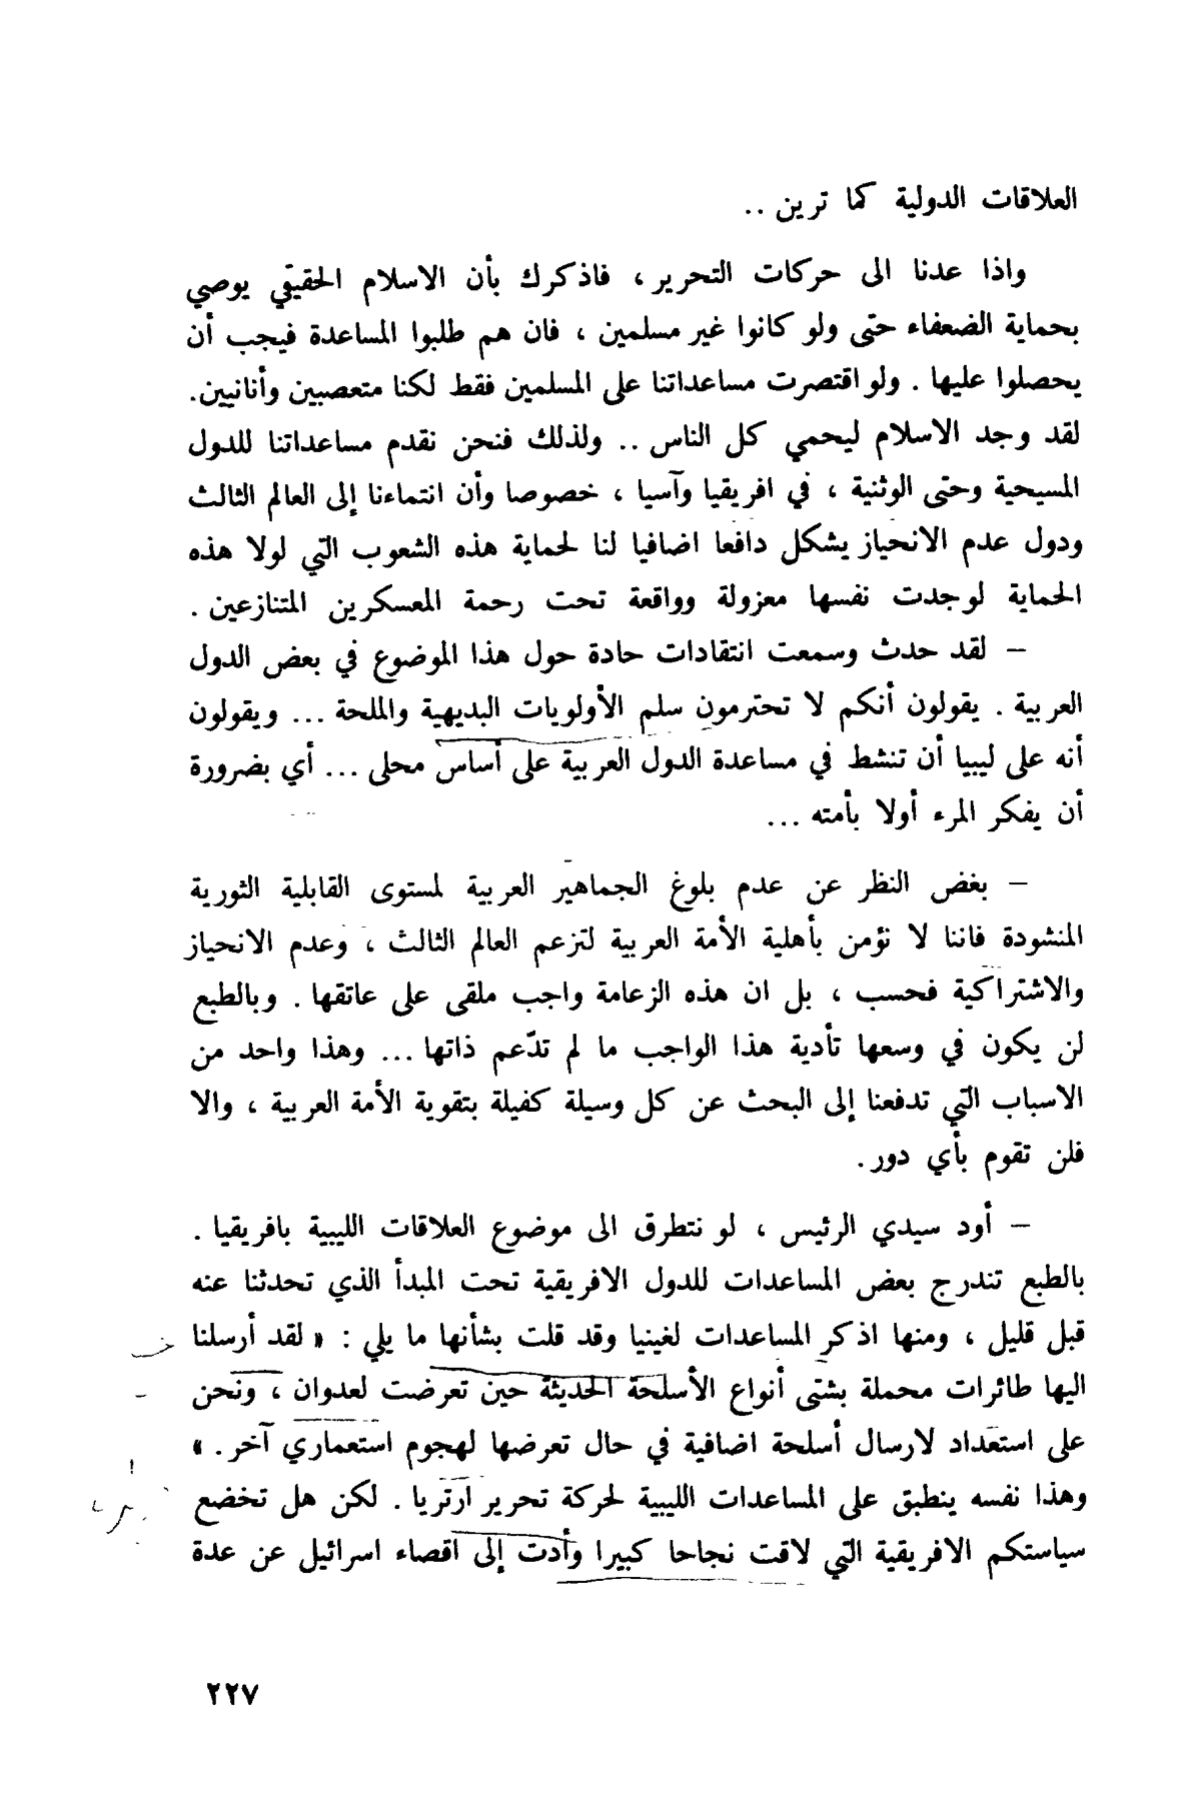 العلاقات الدولية كما ترين ..
واذا عدنا الى حركات التحرير ، فاذكرك بأن الاسلام الحقيقي يوصي
بحماية الضعفاء حتى ولو كانوا غير مسلمين ، فان هم طلبوا المساعدة فيجب أن
يحصلوا عليها . ولو اقتصرت مساعداتنا على المسلمين فقط لكنا متعصبين وأنانيين.
لقد وجد الاسلام ليحمي كل الناس .. ولذلك فنحن نقدم مساعداتنا للدول
المسيحية وحتى الوثنية ، في افريقيا وآسيا ، خصوصا وأن انتماءنا إلى العالم الثالث
ودول عدم الانحياز يشكل دافعا اضافيا لنا لحماية هذه الشعوب التي لولا هذه
الحماية لوجدت نفسها معزولة وواقعة تحت رحمة المعسكرين المتنازعين .
– لقد حدث وسمعت انتقادات حادة حول هذا الموضوع في بعض الدول
العربية . يقولون أنكم لا تحترمون سلم الأولويات البديهية والملحة ... ويقولون
أنه على ليبيا أن تنشط في مساعدة الدول العربية على أساس محلى ... أي بضرورة
أن يفكر المرء أولا بأمته ...
– بغض النظر عن عدم بلوغ الجماهير العربية لمستوى القابلية الثورية
المنشودة فاننا لا نؤمن بأهلية الأمة العربية لتزعم العالم الثالث ، وعدم الانحياز
والاشتراكية فحسب ، بل ان هذه الزعامة واجب ملقى على عاتقها . وبالطبع
لن يكون في وسعها تأدية هذا الواجب ما لم تدّعم ذاتها ... وهذا واحد من
الاسباب التي تدفعنا إلى البحث عن كل وسيلة كفيلة بتقوية الأمة العربية ، والا
فلن تقوم بأي دور.
– أود سيدي الرئيس ، لو نتطرق الى موضوع العلاقات الليبية بافريقيا .
بالطبع تندرج بعض المساعدات للدول الافريقية تحت المبدأ الذي تحدثنا عنه
قبل قليل ، ومنها اذكر المساعدات لغينيا وقد قلت بشأنها ما يلي : « لقد أرسلنا
اليها طائرات محملة بشتى أنواع الأسلحة الحديثة حين تعرضت لعدوان ، ونحن
على استعداد لارسال أسلحة اضافية في حال تعرضها لهجوم استعماري آخر . »
وهذا نفسه ينطبق على المساعدات الليبية لحركة تحرير ارتريا . لكن هل تخضع
سياستكم الافريقية التي لاقت نجاحا كبيرا وأدت إلى اقصاء اسرائيل عن عدة
٢٢٧